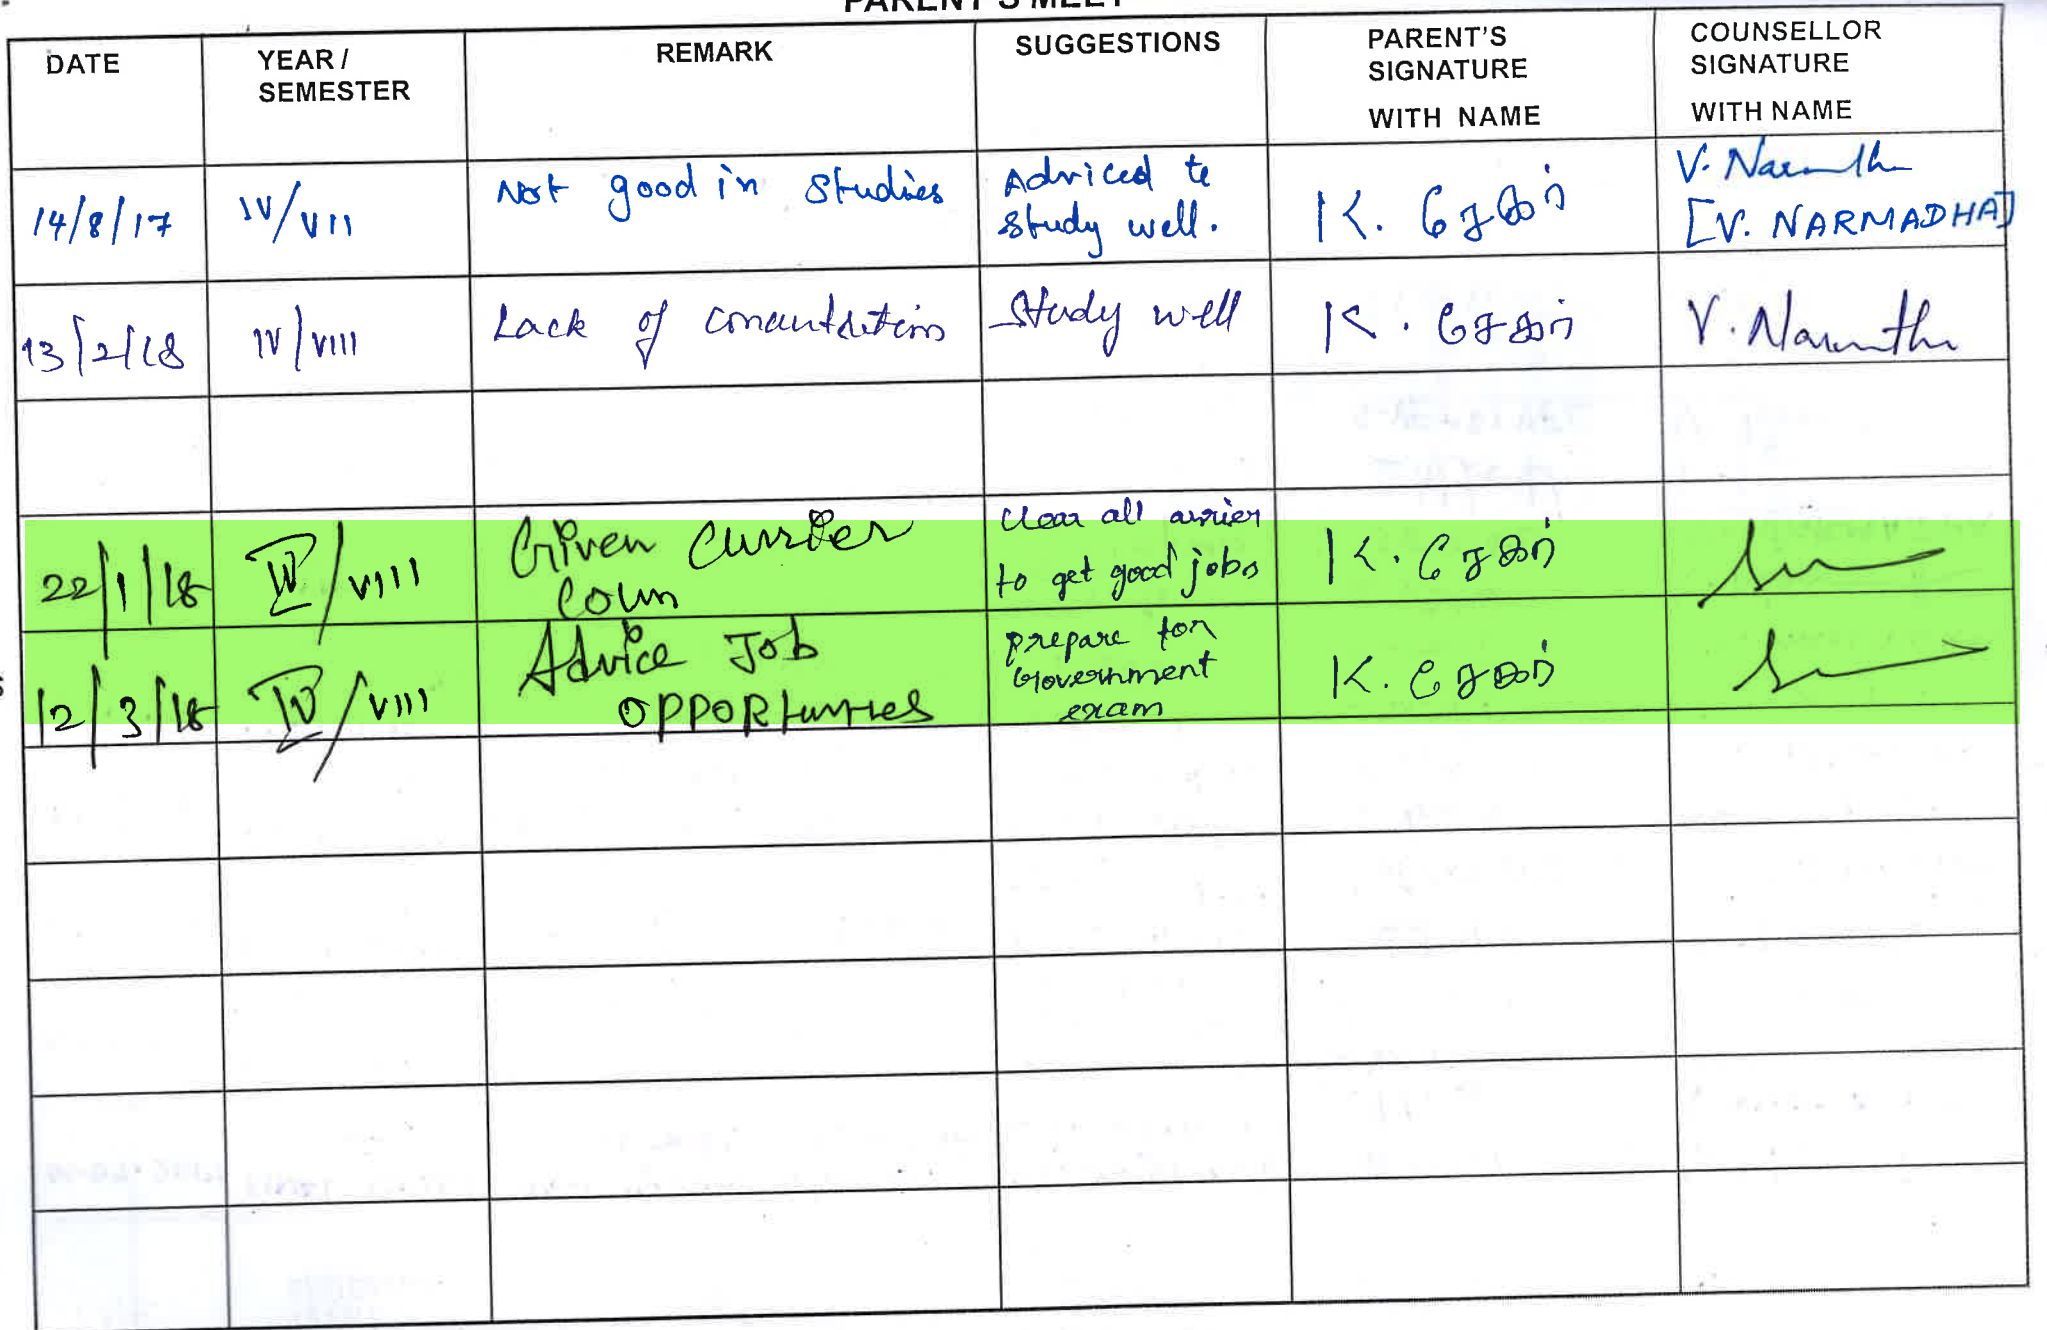 PARENT'S MEET
DATE YEAR / SEMESTER REMARK SUGGESTIONS PARENT'S SIGNATURE WITH NAME COUNSELLOR SIGNATURE WITH NAME
14/8/17 IV/VII Not good in Studies Adviced to study well. K. சேகர் V. Narmadha [V. NARMADHA]
13/2/18 IV/VIII Lack of concentration Study well K. சேகர் V. Narmadha
22/1/18 IV/VIII Given Currier Coun Clear all arrier to get good jobs K. சேகர்
12/3/18 IV/VIII Advice Job OPPORtunities prepare for Government exam K. சேகர்